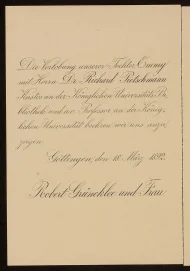 Die Verlobung unserer Tochter Emmy
mit Herrn Dr. Richard Pietschmann
Kustos an der Königlichen Universitäts-Bi
bliothek und a. o. Professor an der König
lichen Universität beehren wir uns anzu
zeigen.
Göttingen, den 18. März 1892.
Robert Grüneklee und Frau